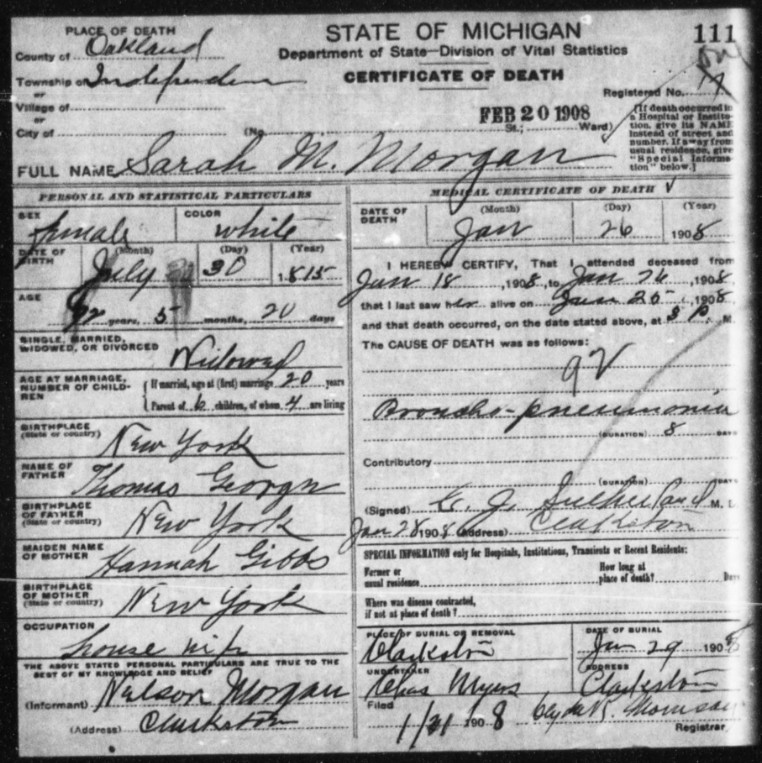 PLACE OF DEATH
County of Oakland
Township of Independen
or
Village of
or
City of
STATE OF MICHIGAN
Department of State—Division of Vital Statistics
CERTIFICATE OF DEATH
111
Registered No.
FEB 20 1908
(No. St.; Ward)
[If death occurred in
a Hospital or Institu-
tion, give its NAME
instead of street and
number. If away from
usual residence, give
"Special Informa-
tion" below.]
FULL NAME Sarah M. Morgan
PERSONAL AND STATISTICAL PARTICULARS
SEX female
COLOR white
DATE OF BIRTH
(Month) (Day) (Year)
July 30 1815
AGE
92 years, 5 months, 20 days
SINGLE, MARRIED,
WIDOWED, OR DIVORCED
Widowed
AGE AT MARRIAGE,
NUMBER OF CHILD-
REN
If married, age at (first) marriage 20 years
Parent of 6 children, of whom 4 are living
BIRTHPLACE
(State or country) New York
NAME OF
FATHER Thomas
BIRTHPLACE
OF FATHER
(State or country) New York
MAIDEN NAME
OF MOTHER Hannah Gibbs
BIRTHPLACE
OF MOTHER
(State or country) New York
OCCUPATION
house wife
THE ABOVE STATED PERSONAL PARTICULARS ARE TRUE TO THE
BEST OF MY KNOWLEDGE AND BELIEF
(Informant) Nelson Morgan
(Address) Clarkston
MEDICAL CERTIFICATE OF DEATH
DATE OF
DEATH
(Month) (Day) (Year)
Jan 26 1908
I HEREBY CERTIFY, That I attended deceased from
Jan 18, 1908, to Jan 26, 1908
that I last saw her alive on Jan 25, 1908
and that death occurred, on the date stated above, at P. M.
The CAUSE OF DEATH was as follows:
Broncho-pneumonia
(DURATION) 8 DAYS
Contributory
(DURATION) DAYS
(Signed) E. J. Sutherland M. D.
Jan 28 1908 (Address) Clarkston
SPECIAL INFORMATION only for Hospitals, Institutions, Transients or Recent Residents:
Former or
usual residence
How long at
place of death? Days
Where was disease contracted,
if not at place of death?
PLACE OF BURIAL OR REMOVAL
Clarkston
DATE OF BURIAL
Jan 29 1908
UNDERTAKER
Chas Myers
ADDRESS
Clarkston
Filed
1/31 1908 Clyde R. Morrison
Registrar